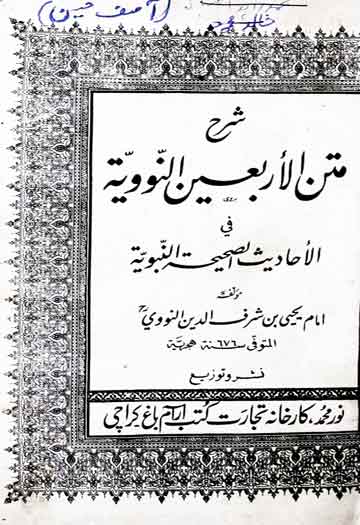 (آصف حسین)
شرح
متن الأربعین النّوویّة
في
الأحادیث الصحیحة النّبویّة
مؤلف
امام یحیی بن شرف الدین النووي
المتوفی سـ٦٧٦ـنة ھجریّة
نشر و توزیع
نور محمد، کارخانہ تجارت کتب آرام باغ کراچی